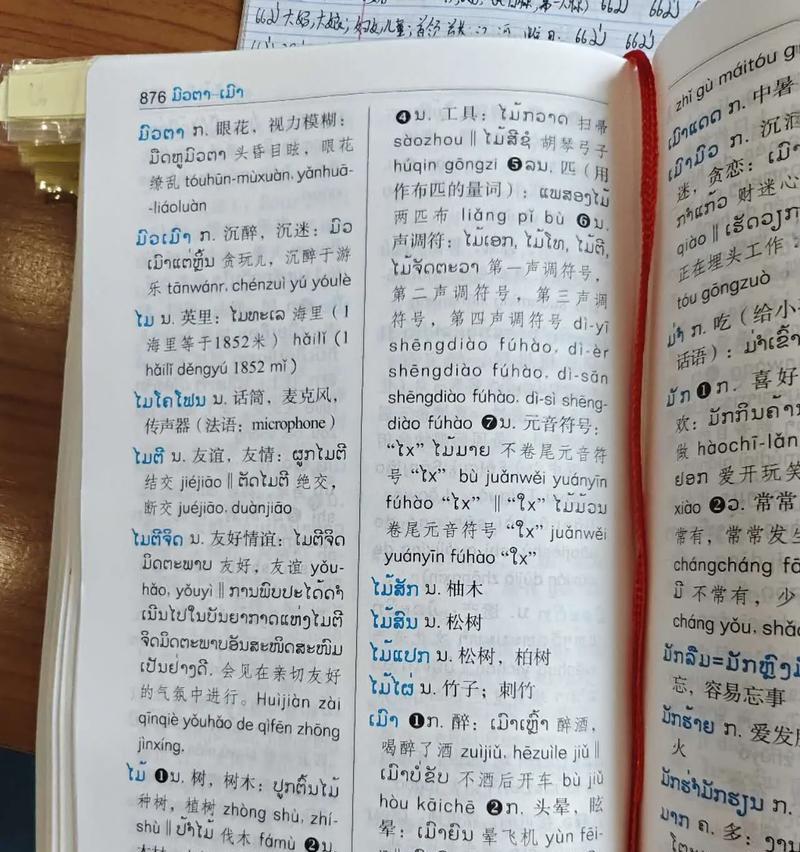 876 ມົວຕາ–ເມົາ
ມົວຕາ ກ. 眼花，视力模糊：
ມືດຫູມົວຕາ 头昏目眩，眼花
缭乱 tóuhūn-mùxuàn, yǎnhuā-
-liáoluàn
ມົວເມົາ ກ. 沉醉，沉迷：ມົວ
ເມົາແຕ່ຫຼິ້ນ 贪玩儿，沉醉于游
乐 tānwánr, chénzuì yú yóulè
ໄມ ນ. 英里：ໄມທະເລ 海里（1
海里等于1852米）hǎilǐ (1
hǎilǐ děngyú 1852 mǐ )
ໄມໂຄໂຟນ ນ. 话筒，麦克风，
传声器（法语：microphone）
ໄມຕີ ນ. 友谊，友情：ຜູກໄມຕີ
结交 jiéjiāo ‖ ຕັດໄມຕີ 绝交，
断交 juéjiāo, duànjiāo
ໄມຕີຈິດ ນ. 友好情谊：ໄມຕີຈິດ
ມິດຕະພາບ 友好，友谊 yǒu-
hǎo, yǒuyì ‖ ການພົບປະໄດ້ດຳ
ເນີນໄປໃນບັນຍາກາດແຫ່ງໄມຕີ
ຈິດມິດຕະພາບອັນສະໜິດສະໜົມ
ເປັນຢ່າງດີ. 会见在亲切友好
的气氛中进行。Huìjiàn zài
qīnqiè yǒuhǎo de qìfēn zhōng
jìnxíng.
ໄມ້ ❶ນ. 树，树木：ປູກຕົ້ນໄມ້
种树，植树 zhòng shù, zhí-
shù ‖ ປ້ຳໄມ້ 伐木 fámù ❷ນ.
❹ນ. 工具：ໄມ້ກວາດ 扫帚
sàozhou ‖ ໄມ້ສີຊໍ 胡琴弓子
húqin gōngzi ❺ລນ. 匹（用
作布匹的量词）：ແພສອງໄມ້
两匹布 liǎng pǐ bù ❻ນ.
声调符：ໄມ້ເອກ, ໄມ້ໂທ, ໄມ້ຕີ,
ໄມ້ຈັດຕະວາ 第一声调符号，
第二声调符号，第三声调
符号，第四声调符号 dì-yī
shēngdiào fúhào, dì-èr
shēngdiào fúhào, dì-sān
shēngdiào fúhào, dì-sì shēng-
diào fúhào ❼ນ. 元音符号：
“ໄx” ໄມ້ມາຍ 不卷尾元音符
号 “ໄx” bù juǎnwěi yuányīn
fúhào “ໄx” ‖ “ໃx” ໄມ້ມ້ວນ
卷尾元音符号 “ໃx” juǎnwěi
yuányīn fúhào “ໃx”
ໄມ້ສັກ ນ. 柚木
ໄມ້ສົນ ນ. 松树
ໄມ້ແປກ ນ. 松树，柏树
ໄມ້ໄຜ່ ນ. 竹子；刺竹
ເມົາ ❶ກ. 醉：ເມົາເຫຼົ້າ 醉酒，
喝醉了酒 zuìjiǔ, hēzuìle jiǔ ‖
ເມົາບໍ່ຂັບ 不酒后开车 bù jiǔ
hòu kāichē ❷ກ. 头晕，眩
晕：ເມົາຍົນ 晕飞机 yùn fēi-
zhī gù máitóu g
ເມົາແດດ ກ. 中暑
ເມົາມົວ ກ. 沉
迷，贪恋：ເມົາ
ກາແກ້ວ 财迷心
qiào ‖ ເຮັດວຽກ
正在埋头工作
tóu gōngzuò
ມ່ຳ ກ. 吃（给小
话语）：ມ່ຳເຂົ້າ
ມັກ ❶ກ. 喜好
欢：ມັກກິນຄ້ານ
做 hàochī-lǎn
ຢອກ 爱开玩笑
xiào ❷ວ. 常常
常有，常常发生
chángcháng fā
ມີ 不常有，少
cháng yǒu, shǎo
ມັກລືມ=ມັກຫຼົງລ
忘，容易忘事
ມັກຮ້າຍ ກ. 爱发
火
ມັກຮ່ຳມັກຮຽນ ກ.
ມາກ ຄ. 多：ງານ